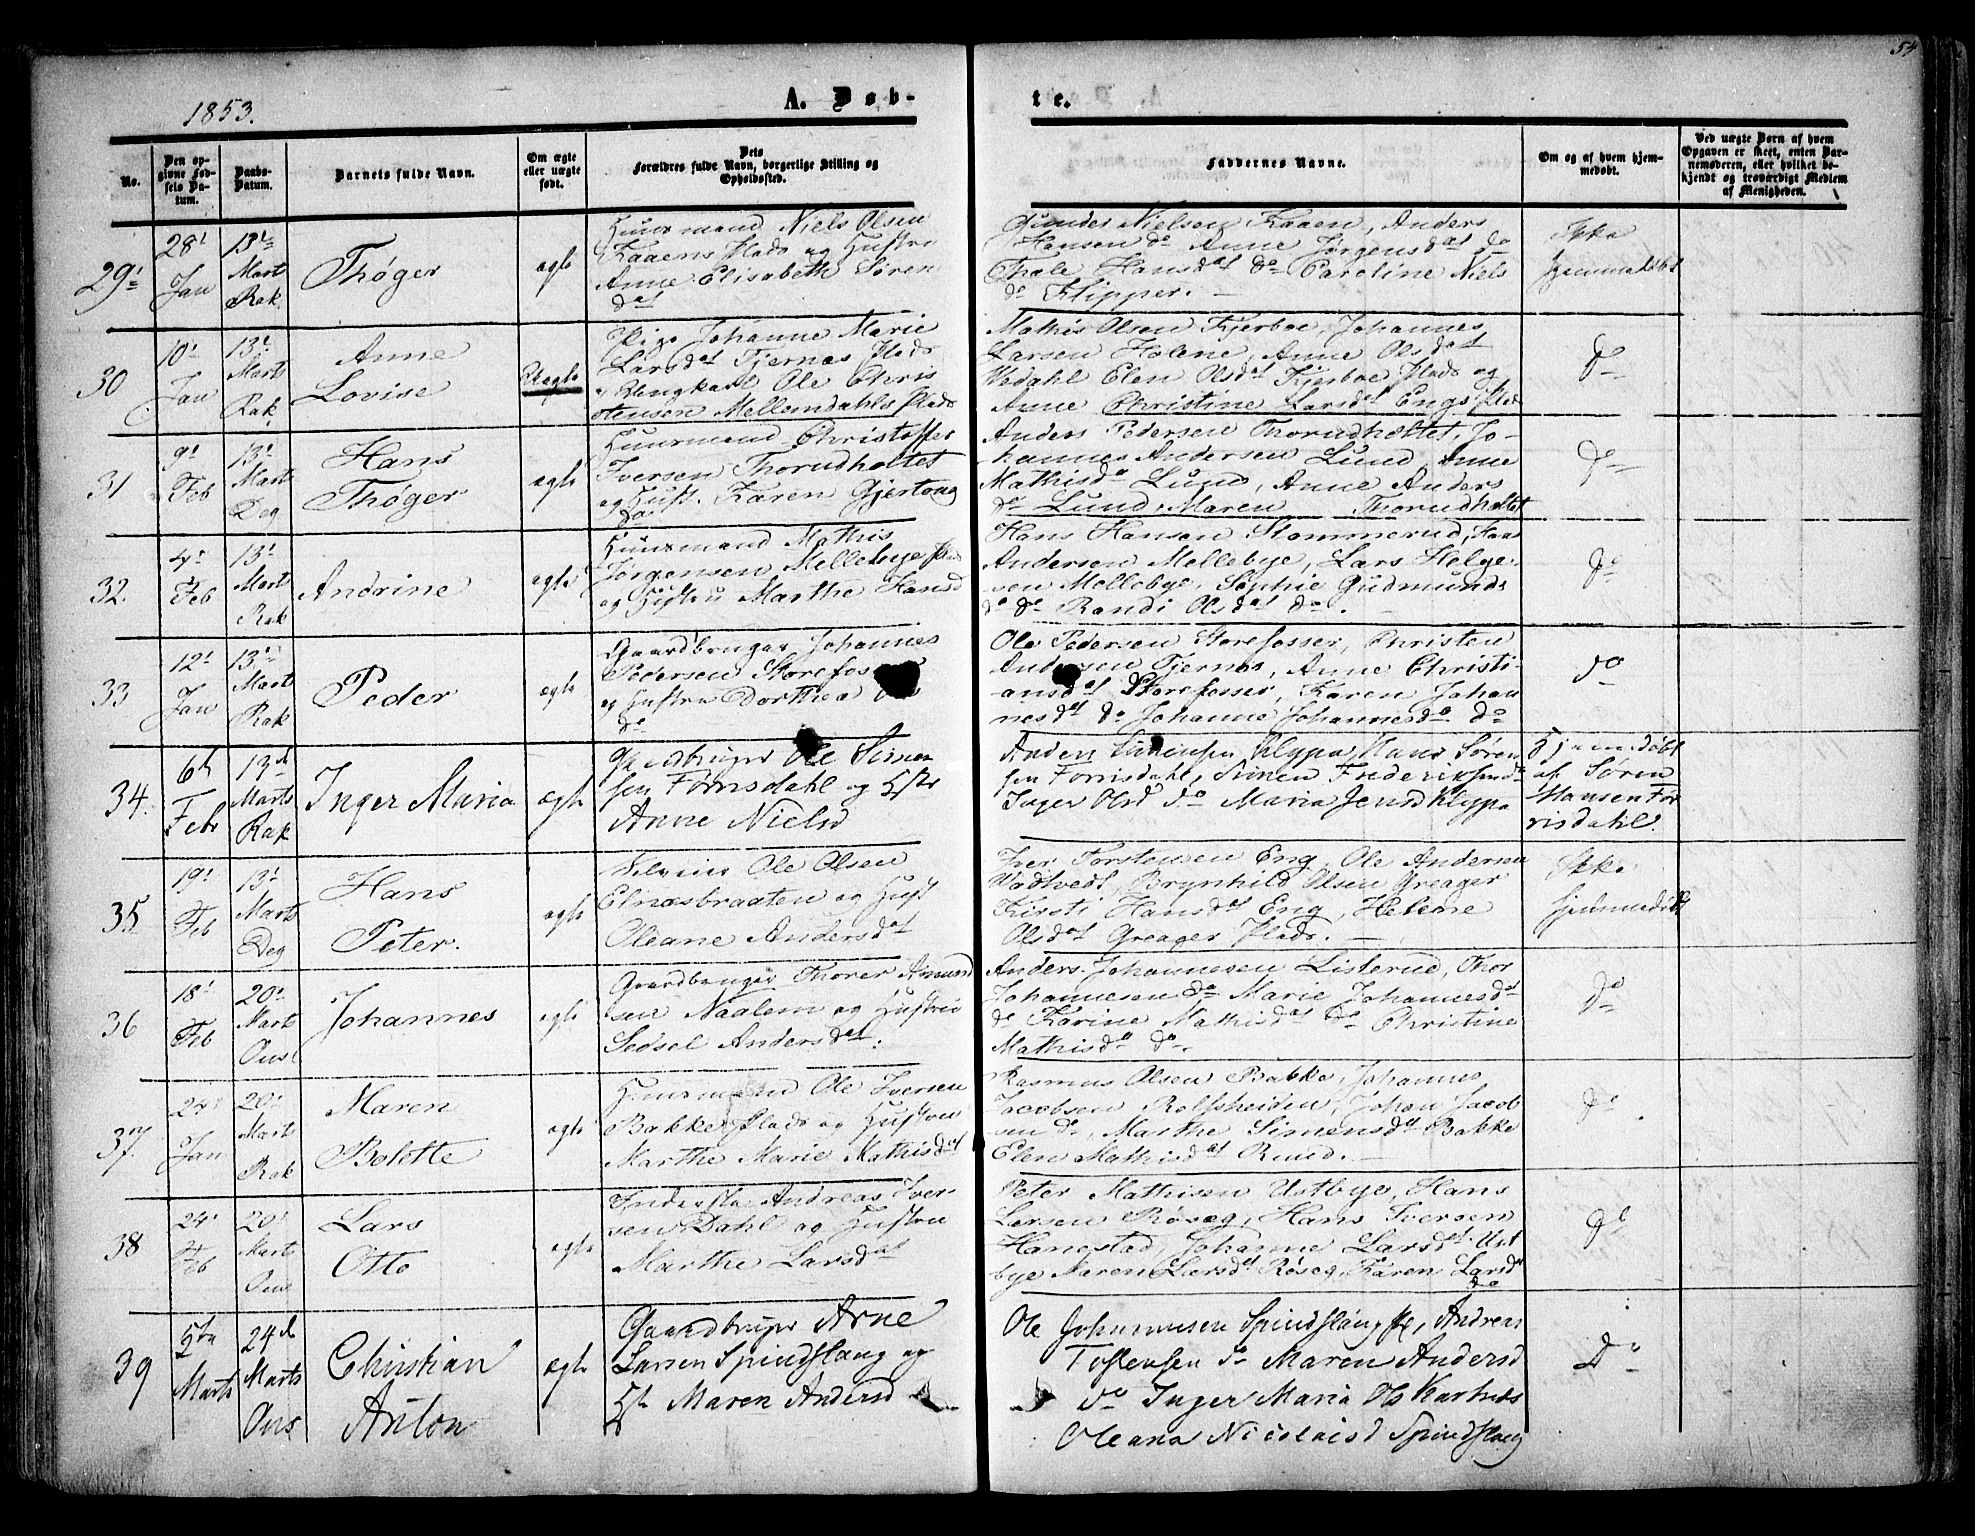 54
1853.
A. Døb-
te.
No.
Den op-
givne Fød-
sels Da-
tum.
Daabs-
Datum.
Barnets fulde Navn.
Om ægte
eller uægte
født.
Dets
Forældres fulde Navn, borgerlige Stilling og
Opholdssted.
Faddernes Navne.
Om og af hvem hjem-
medøbt.
Ved uægte Børn af hvem
Opgaven er skeet, enten Bar-
nemoderen, eller hvilket be-
kjendt og troværdigt Medlem
af Menigheden.
29
28
Jan
13
Mart
Rak
Thøger
ægte
Huusmand Niels Olsen
Kaaens Plads og Hustru
Anne Elisabeth Søren
dat
Nielsen Kaaen, Anders
Hansen do Anne Jørgensdat do
Thale Hansdat do Caroline Niels
do Klipper.
Ikke
hjemmedøbt
30
10
Jan
13
Marts
Rak
Anne
Lovise
Uægte
Pige Johanne Marie
Larsdat Tjernæs Plads
Ungkarl Ole Chris
tensen Mellemdahls Plads
Mathis Olsen Kjerboe, Johannes
Larsen Holene, Anne Olsdat
Wadahl Elen Olsdat Kjerboe Plads og
Anne Christine Larsdat Engs Plads
do
31
9
Feb
13
Mart
Dog
Hans
Thøger
ægte
Huusmand Christoffer
Iversen Thorudholtet
og Hust. Karen Gjertong
dat
Anders Pedersen Thorudholtet, Jo-
hannes Andersen Lund, Anne
Mathisd Lund, Anne Anders
do Lund, Maren Thorudholtet
do
32.
4
Feb
13
Mart
Rak
Andrine
ægte
Huusmand Mathis
Jørgensen Mellebye Plads
og Hustru Marthe Hansd
Hans Hansen Stommerud, Hans
Andersen Mellebye, Lars Helge-
sen Mellebye, Sophie Gudmunds
do do Randi Olsdat do.
do
33
12
Jan
13
Mart
Rak
Peder
ægte
Gaardbruger Johannes
Pedersen Storefos
og Hustru Dorthea
do
Ole Pedersen Storefosser, Christen
Andersen Tjernæs, Anne Christi-
ansdat Storefosser, Karen Johan
nesdat do Johanne Johannesdo do
do
34.
6t
Feb
13d
Marts
Rak
Inger Maria
ægte
Ole Simen
sen Fornsdahl og Hstr
Anne Nielsd
Simensen Klypa, Hans Søren
sen Fornsdahl, Simen
Inger Olsd do Maria Jensd Klypa
Hjemmedøbt
af Søren
Hansen For
risdahl.
35
19
Feb
13
Marts
Dog
Hans
Peter.
ægte
Selveier Ole Olsen
Elnæsbraaten og Hust
Oleane Andersdat
Iver Torstensen Eng, Ole Andersen
Wadtvedt, Brynhild Olsen Greager
Kirsti Hansdat Eng, Helene
Olsdat Greager Plads.
Ikke
hjemmedøbt
36
18
Feb
20
Marts
Ous
Johannes
ægte
Gaardbruger Thorer Amund
sen Naalem og Hustru
Sedsel Andersdat.
Anders Johannesen Listerud, Thor
Johannesen do Marie Johannesdat
do Karine Mathisdat do Christine
Mathisd do.
do
37.
24
Jan
20
Mart
Rak
Maren
Bolette
ægte
Huusmand Ole Iversen
Bakke Plads og Hustru
Marthe Marie Mathisdat
Rasmus Olsen Bakke, Johannes
Jacobsen Rolfsheiden, Johan Jacob
sen do, Marthe Simensdat Bakke
Elen Mathisdat Ruud.
do
38
24
Feb
20
Marts
Ous
Lars
Otto
ægte
Inderste Andreas Iver-
sen Dahl og Hustru
Marthe Larsdat
Peter Mathisen Ustbye, Hans
Larsen Røseg, Hans Iversen
Hanestad, Johanne Larsdat Ust
bye Maren Larsdat Røseg, Karen Larsdat
do
do
39
5te
Marts
24d
Marts
Ous
Christian
Anton
ægte
Gaardbruger Arne
Larsen Spindslaug og
Hst Maren Andersd
Ole Johannesen Spindslaug, Andrea
Tostensen do Maren Andersd
do Inger Maria
Oleana Nicolaisd Spindslaug
Do